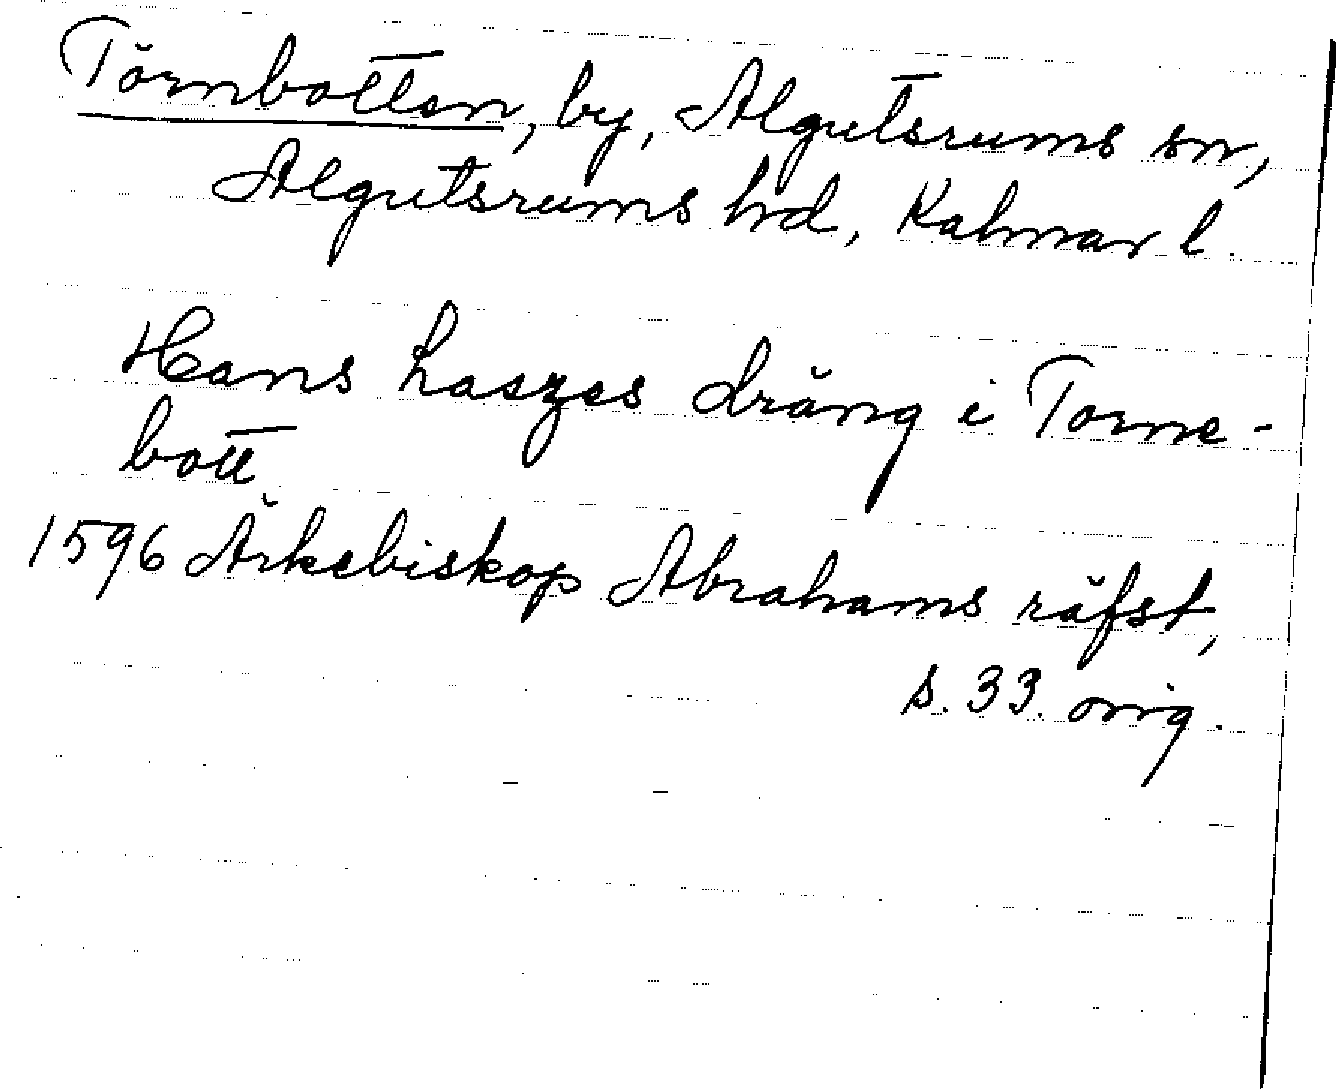 Törnbotten, by, Algutsrums sn,
Algutsrums hd, Kalmar l.
Hans Laszes dräng i Torne-
bott
1596 Ärkebiskop Abrahams räfst,
s. 33. orig.